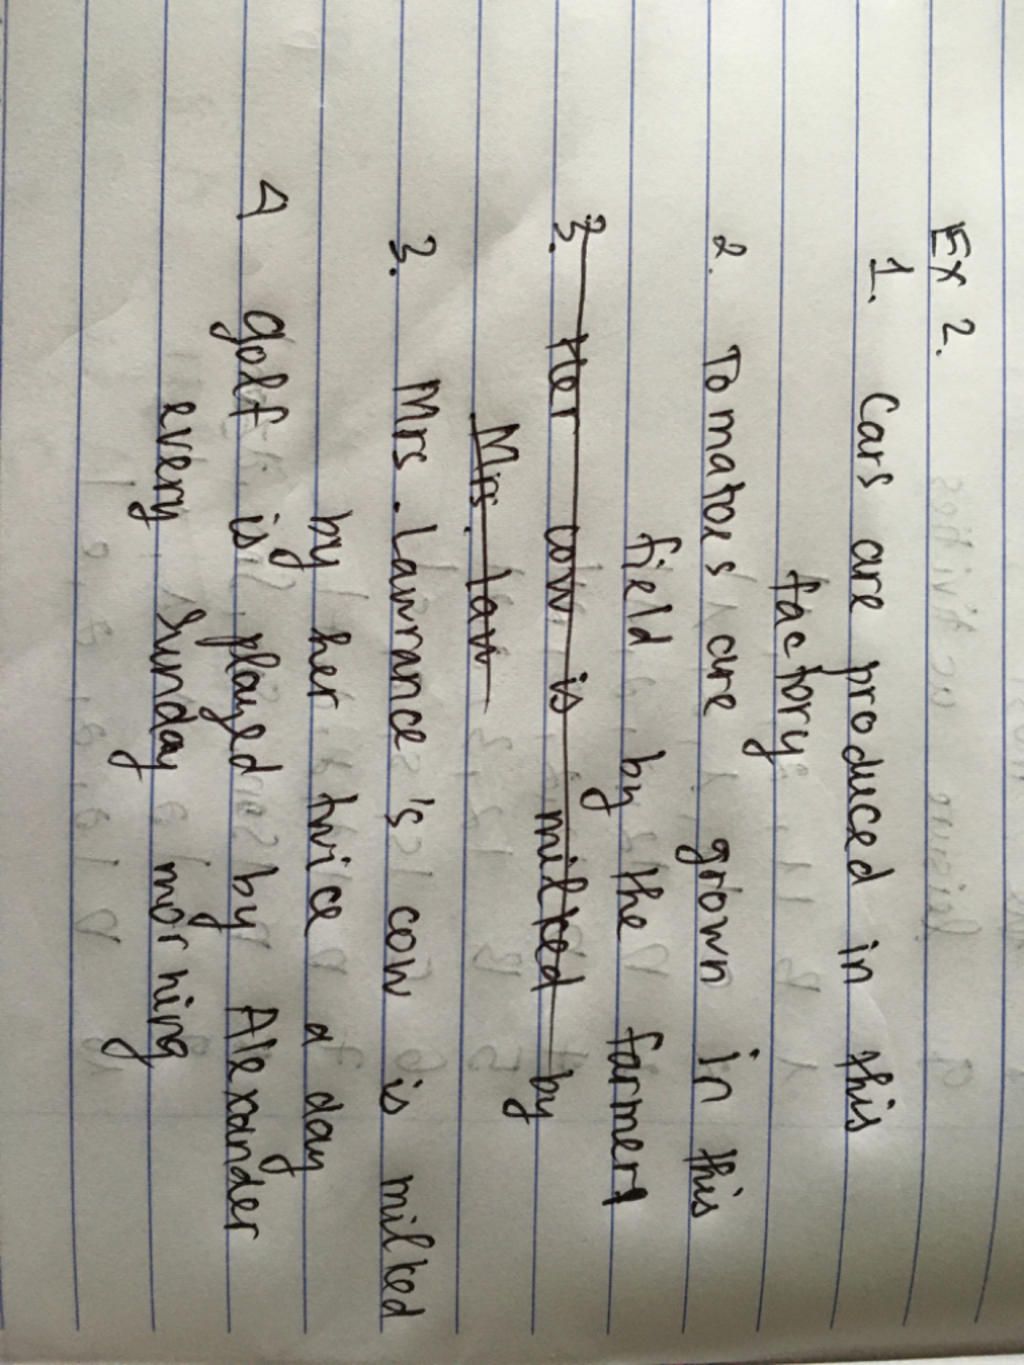 Ex 2.
1. Cars are produced in this
factory
2. Tomatoes are grown in this
field by the farmer
3. Her cow is milked by
Mrs. law
3. Mrs. Lawrance's cow is milked
by her twice a day
4 golf is played by Alexander
every Sunday morning